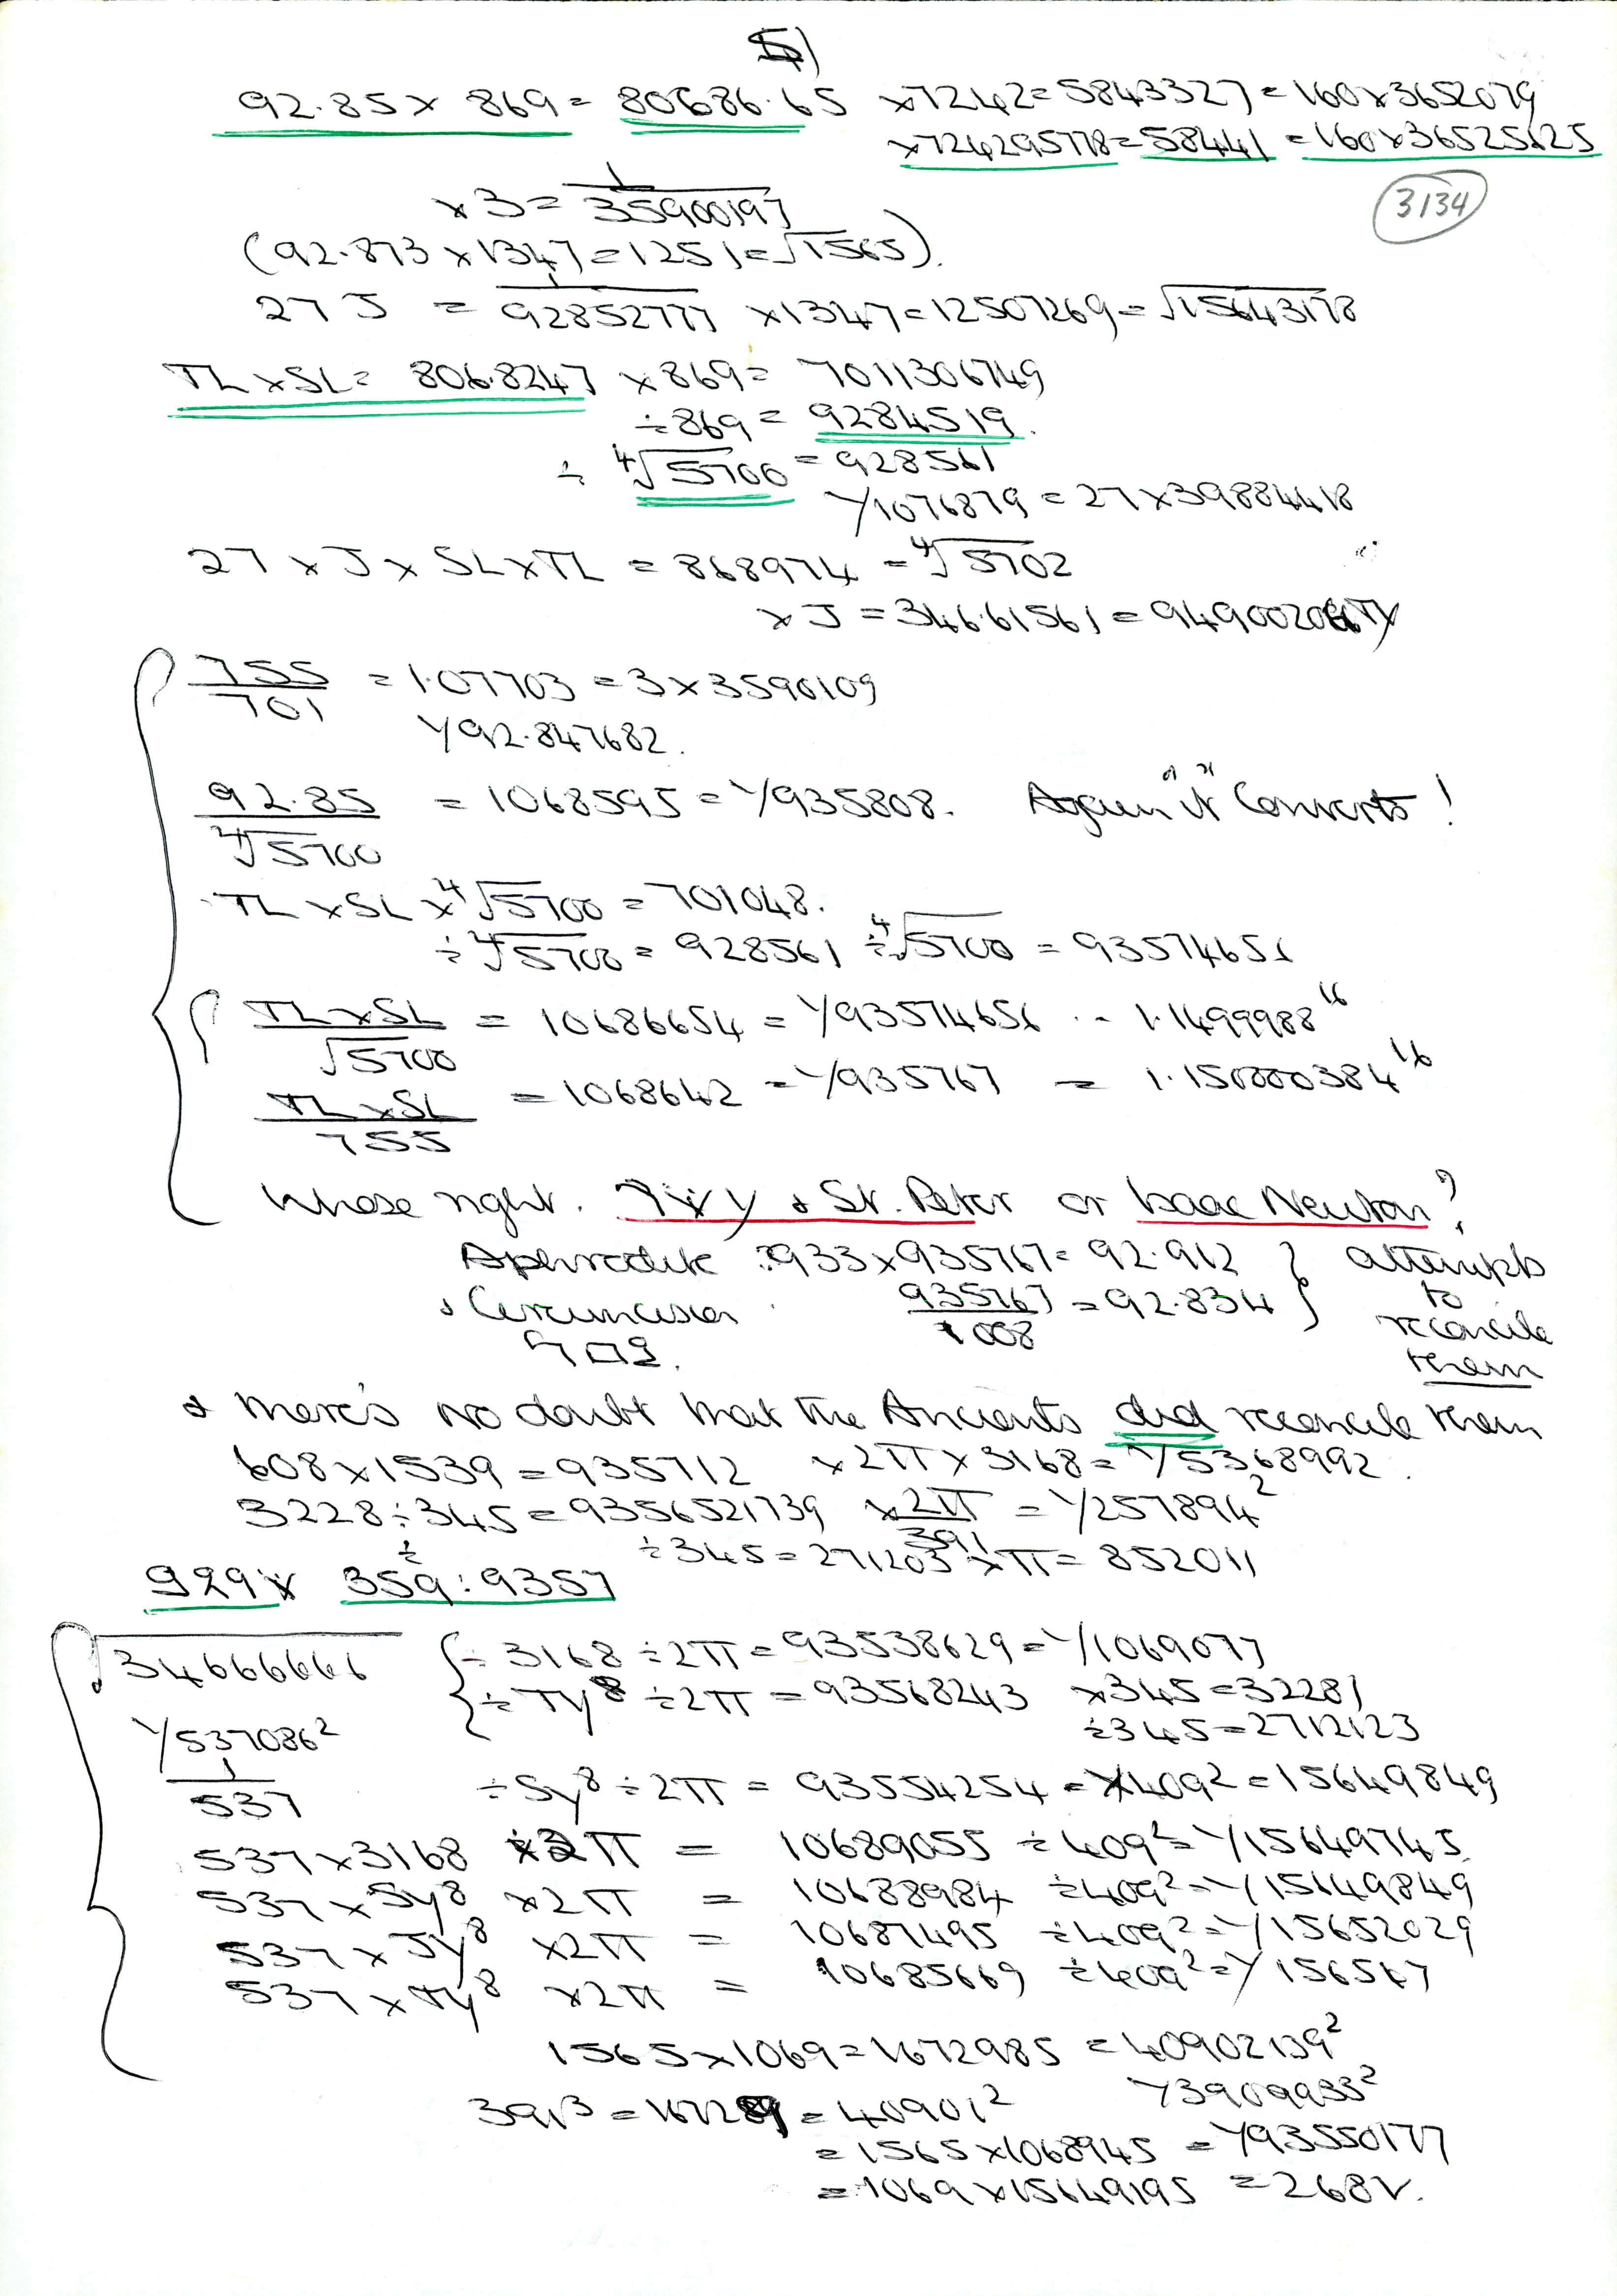 5)
92.85 x 869 = 80686.65 x7242=5843327=160x3652079
x724295778=58441=160x36525625
3134
x3 = 1/35900197
(92.873 x1347=1251=√1565).
27 J = 1/92852777 x1347=12507269=√15643178
TL x SL = 806.8247 x869= 7011306749
÷869 = 9284519.
÷ ⁴√5700 = 928561
Y1076879 = 27x39884418
27 x J x SL x TL = 868974 = ⁴√5702
x J = 346.61561 = 9490020
755/701 = 1.07703 = 3x3590109
Y92.847682.
92.85/⁴√5700 = 1068595 = Y935808. Again it Converts!
TL x SL x ⁴√5700 = 701048.
÷ ⁴√5700 = 928561 ÷ ⁴√5700 = 93574656
TL x SL/√5700 = 10686654 = Y93574656 .. 1.1499988¹⁶
TL x SL/755 = 1068642 = Y935767 = 1.150000384¹⁶
Whose right. & St. Peter or Isaac Newton?
Aphrodite : 933x935767= 92.912 } attempts
& Circumcision 935767/1008 = 92.834 } to
reconcile
them
& there's no doubt that the Ancients did reconcile them
608x1539=935712 x2π x3168= Y5368992.
3228÷345=9356521739 x2π/391 = Y257894²
÷345=271203 xπ= 852011
929x 359:9357
√34666666 { ÷ 3168 ÷2π=93538629=Y1069077
÷ Ty⁸ ÷2π = 93568243 x345=32281
Y537086² ÷345=2712123
1/537 ÷Sy⁸ ÷2π = 93554254 = Y409²=15649849
537x3168 x2π = 10689055 ÷409²=Y15649745
537xSy⁸ x2π = 10688984 ÷409²=Y15649849
537xJy⁸ x2π = 10687495 ÷409²=Y15652029
537xTy⁸ x2π = 10685669 ÷409²=Y156547
1565x1069=1672985 = 40902139²
391³ = 167289 = 40901² Y3909933²
= 1565x1068945 = Y93550177
= 1069x15649195 = 268V.